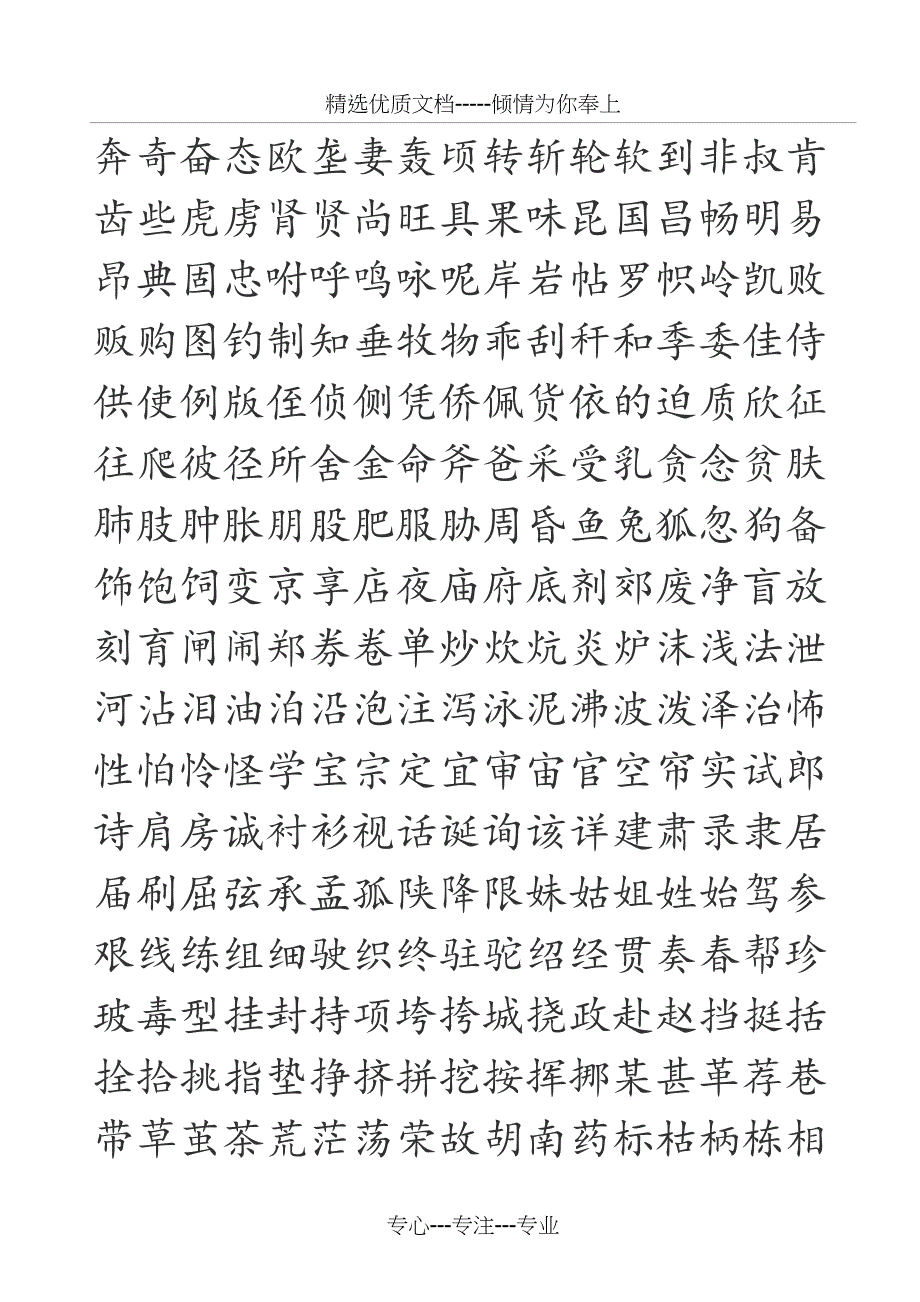 精选优质文档-----倾情为你奉上
奔奇奋态欧垄妻轰顷转斩轮软到非叔肯
齿些虎虏肾贤尚旺具果味昆国昌畅明易
昂典固忠咐呼鸣咏呢岸岩帖罗帜岭凯败
贩购图钓制知垂牧物乖刮秆和季委佳侍
供使例版侄侦侧凭侨佩货依的迫质欣征
往爬彼径所舍金命斧爸采受乳贪念贫肤
肺肢肿胀朋股肥服胁周昏鱼兔狐忽狗备
饰饱饲变京享店夜庙府底剂郊废净盲放
刻育闸闹郑券卷单炒炊炕炎炉沫浅法泄
河沾泪油泊沿泡注泻泳泥沸波泼泽治怖
性怕怜怪学宝宗定宜审宙官空帘实试郎
诗肩房诚衬衫视话诞询该详建肃录隶居
届刷屈弦承孟孤陕降限妹姑姐姓始驾参
艰线练组细驶织终驻驼绍经贯奏春帮珍
玻毒型挂封持项垮挎城挠政赴赵挡挺括
拴拾挑指垫挣挤拼挖按挥挪某甚革荐巷
带草茧茶荒茫荡荣故胡南药标枯柄栋相
专心---专注---专业